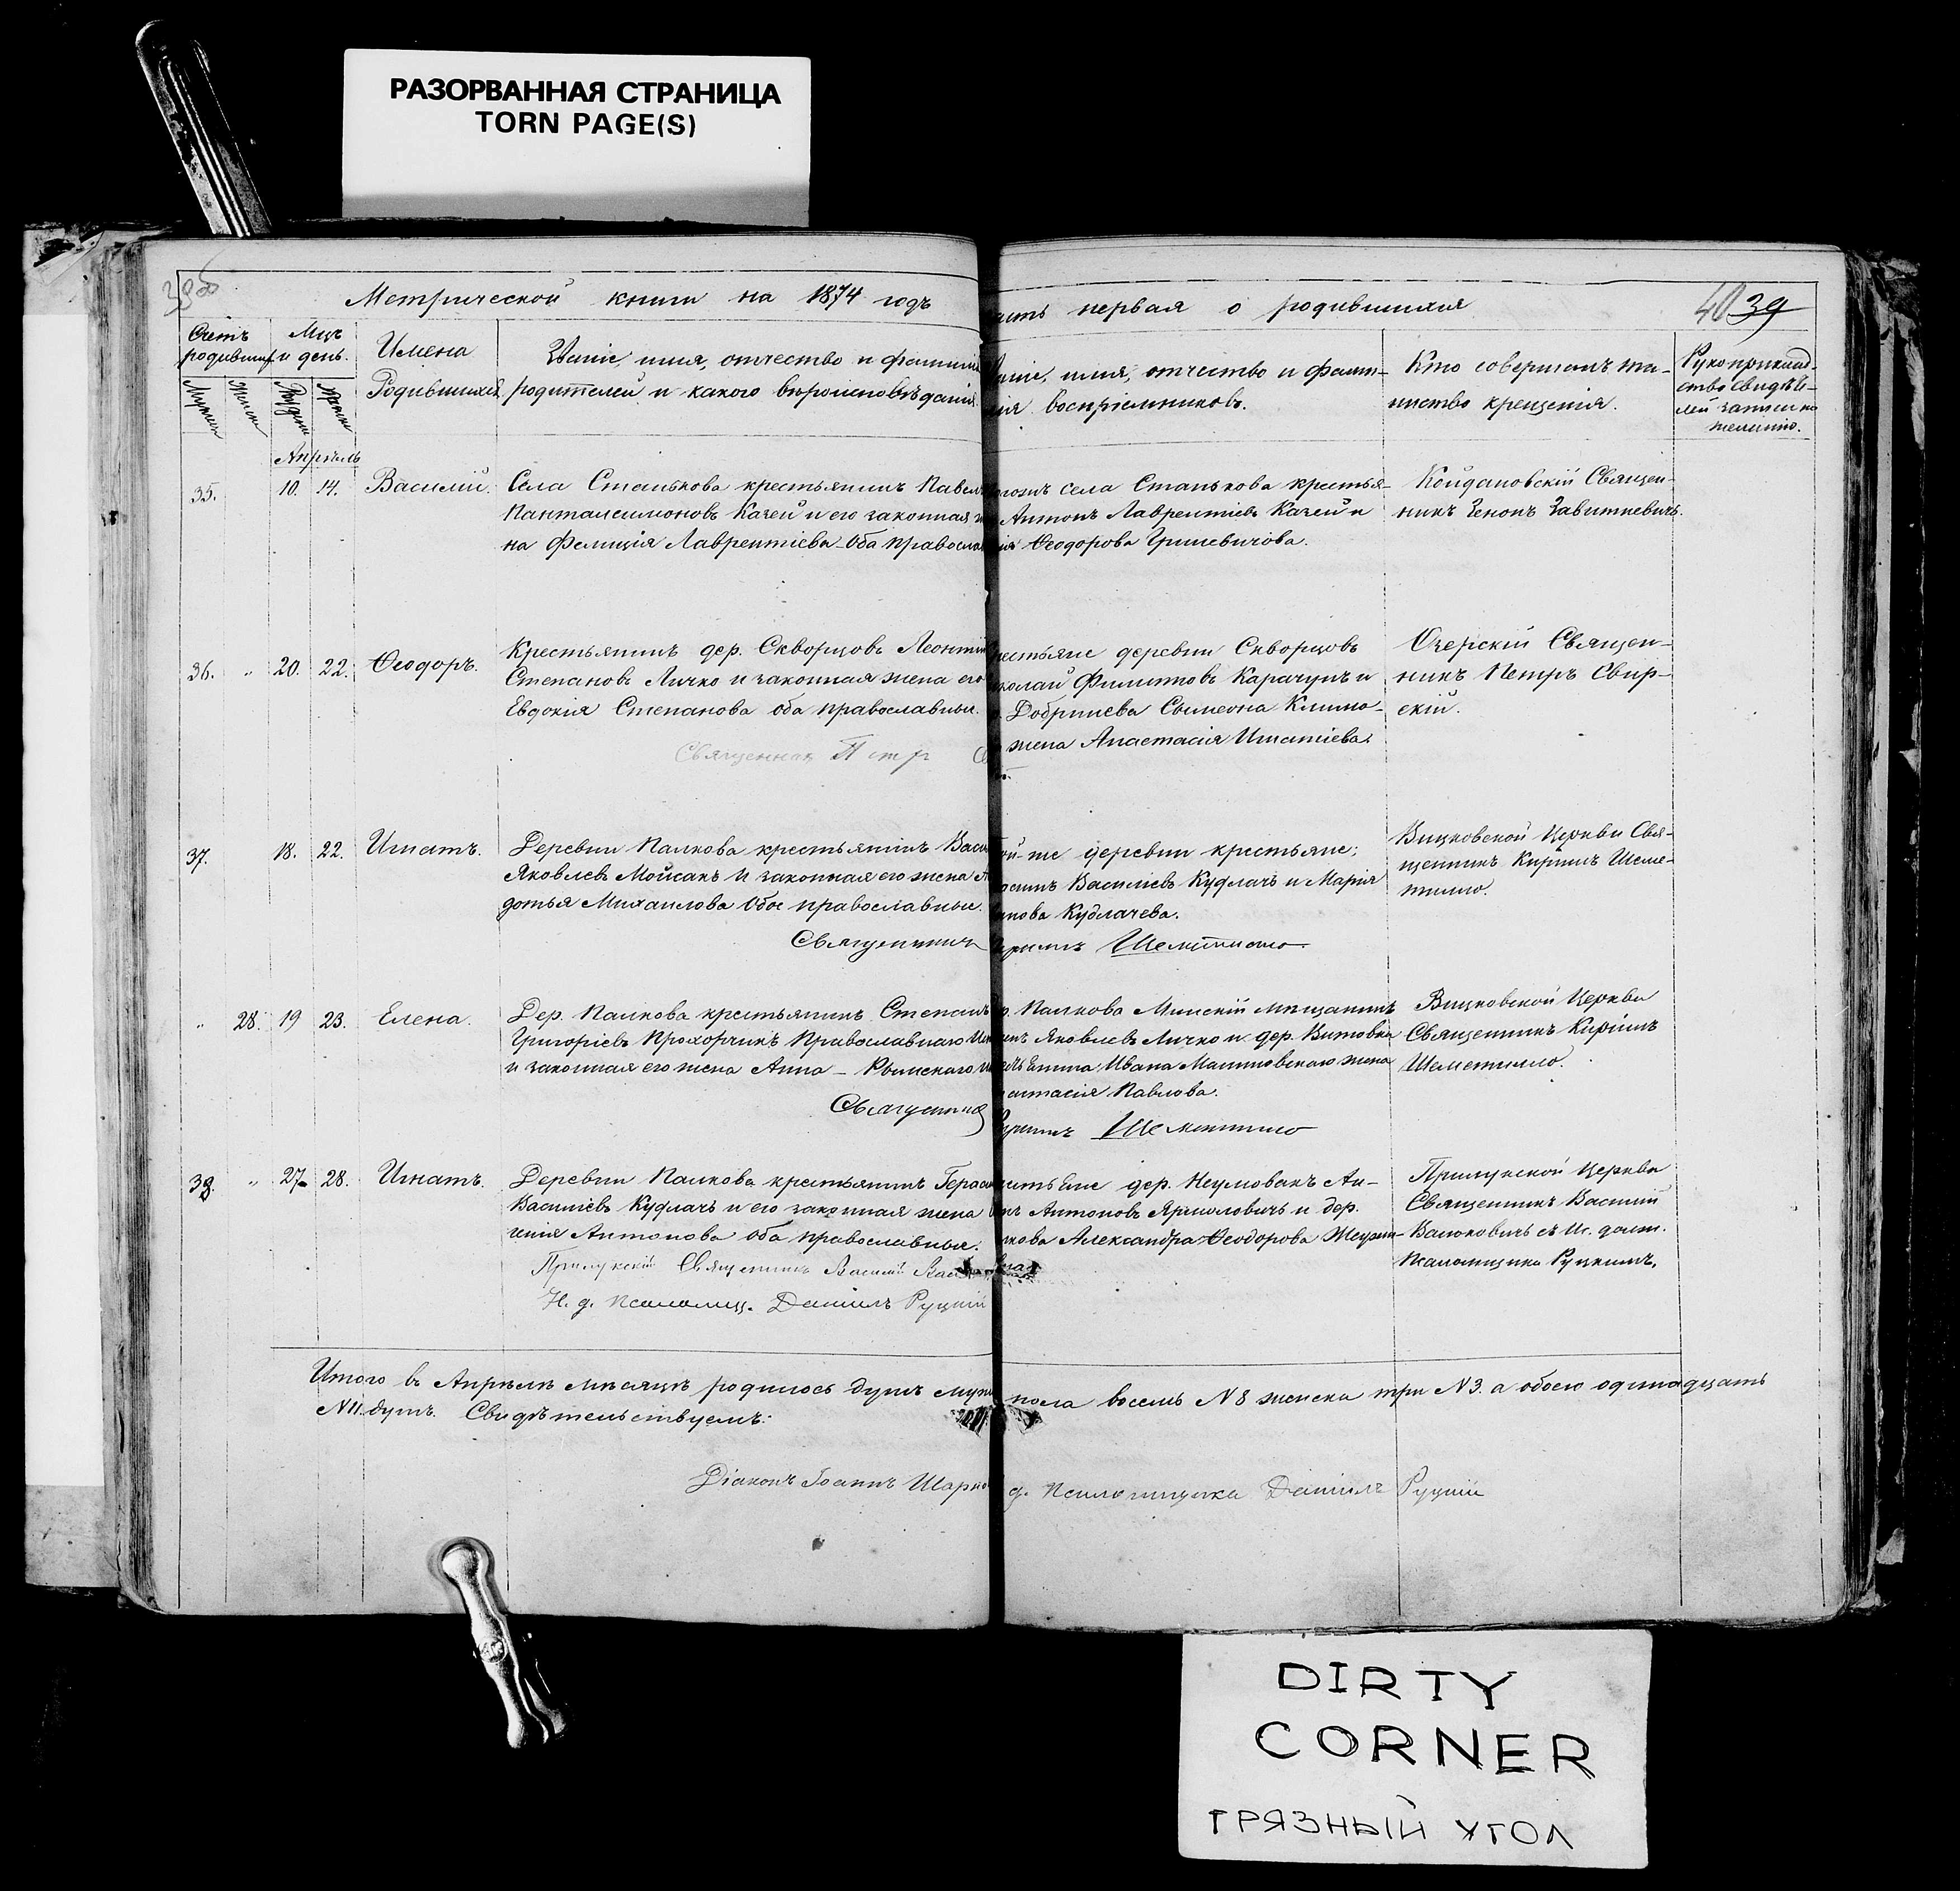 РАЗОРВАННАЯ СТРАНИЦА
TORN PAGE(S)
Метрической книги на 1874 годъ
Счетъ родивших.
Мцъ и день.
Имена Родившихся
Званіе, имя, отчество и фамилія
родителей и какого вѣроисповѣданія.
первая о родившихся
40 39
имя, отчество и фами-
воспріемниковъ.
Кто совершалъ та-
инство крещенія.
Рукоприклад-
ство свидѣте-
лей записи по
желанію.
Апрѣль
35. 10. 14. Василій.
Села Станькова крестьянинъ Павелъ
Пантелеимоновъ Качей и его законная
на Фелиція Лаврентіева Оба правосла
села Станькова крестья-
Антонъ Лаврентіевъ Качей и
Ѳеодорова Гриневичова.
Койдановскій Священ-
никъ Зенонъ Завитневичъ.
36. " 20. 22. Ѳеодоръ.
Крестьянинъ дер. Скворцовъ Леонтій
Степановъ Личко и законная жена его
Евдокія Степанова оба православные.
Священник Петр
деревни Скворцовъ
Филиповъ Карачунъ и
Добринева Сымеона Климо-
жена Анастасія Игнатіева.
Озерскій Священ-
никъ Петръ Свир-
скій.
37. 18. 22. Игнатъ.
Деревни Палкова крестьянинъ Васи
Яковлевъ Мойсакъ и законная его жена А
дотья Михаилова Обое православные.
Священникъ
той-же деревни крестьяне;
Василіевъ Кудлачъ и Марія
Кудлачева.
Кириллъ Шеметилло
Вицковской Церкви Свя-
щенникъ Кириллъ Шеме-
тилло.
" 28. 19 23. Елена.
Дер. Палкова крестьянинъ Степанъ
Григоріевъ Прохорчикъ Православнаго
и законная его жена Анна – Римскаго
Священни
Палкова Минскій мѣщанинъ
Яковлевъ Личко и дер. Витовка
Ивана Малиновскаго жена
Павлова.
Кириллъ Шеметилло
Вицковской Церкви
Священникъ Кириллъ
Шеметилло.
38. " 27 28. Игнатъ.
Деревни Палкова крестьянинъ Гераси
Василіевъ Кудлачъ и его законная жена
Антонова оба православные.
Прилукскій Священникъ Василій
И. д. псаломщ. Даніилъ Руцкій
дер. Неумовакъ Ан-
Антоновъ Ярмоловичъ и дер.
Александра Ѳеодорова
Прилукской Церкви
Священникъ Василій
съ и. долж.
Псаломщика Руцкимъ.
Итого въ Апрѣлѣ мѣсяцѣ родилось душъ муж пола восемь N 8 женска три N 3. а обоего одинадцать
N 11. душъ. Свидѣтельствуемъ:
Діаконъ Іоаннъ
д. псаломщика Даніилъ Руцкій
DIRTY
CORNER
ГРЯЗНЫЙ УГОЛ